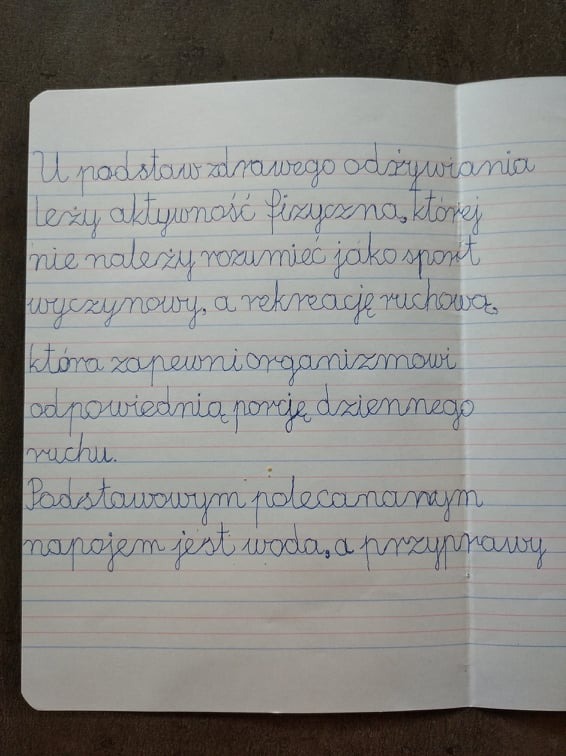 U podstaw zdrawego odżywiania
leży aktywność fizyczna, której
nie należy rozumieć jako sport
wyczynowy, a rekreację ruchową,
która zapewni organizmowi
odpowiednią porcję dziennego
ruchu.
Podstawowym polecananym
napojem jest woda, a przyprawy